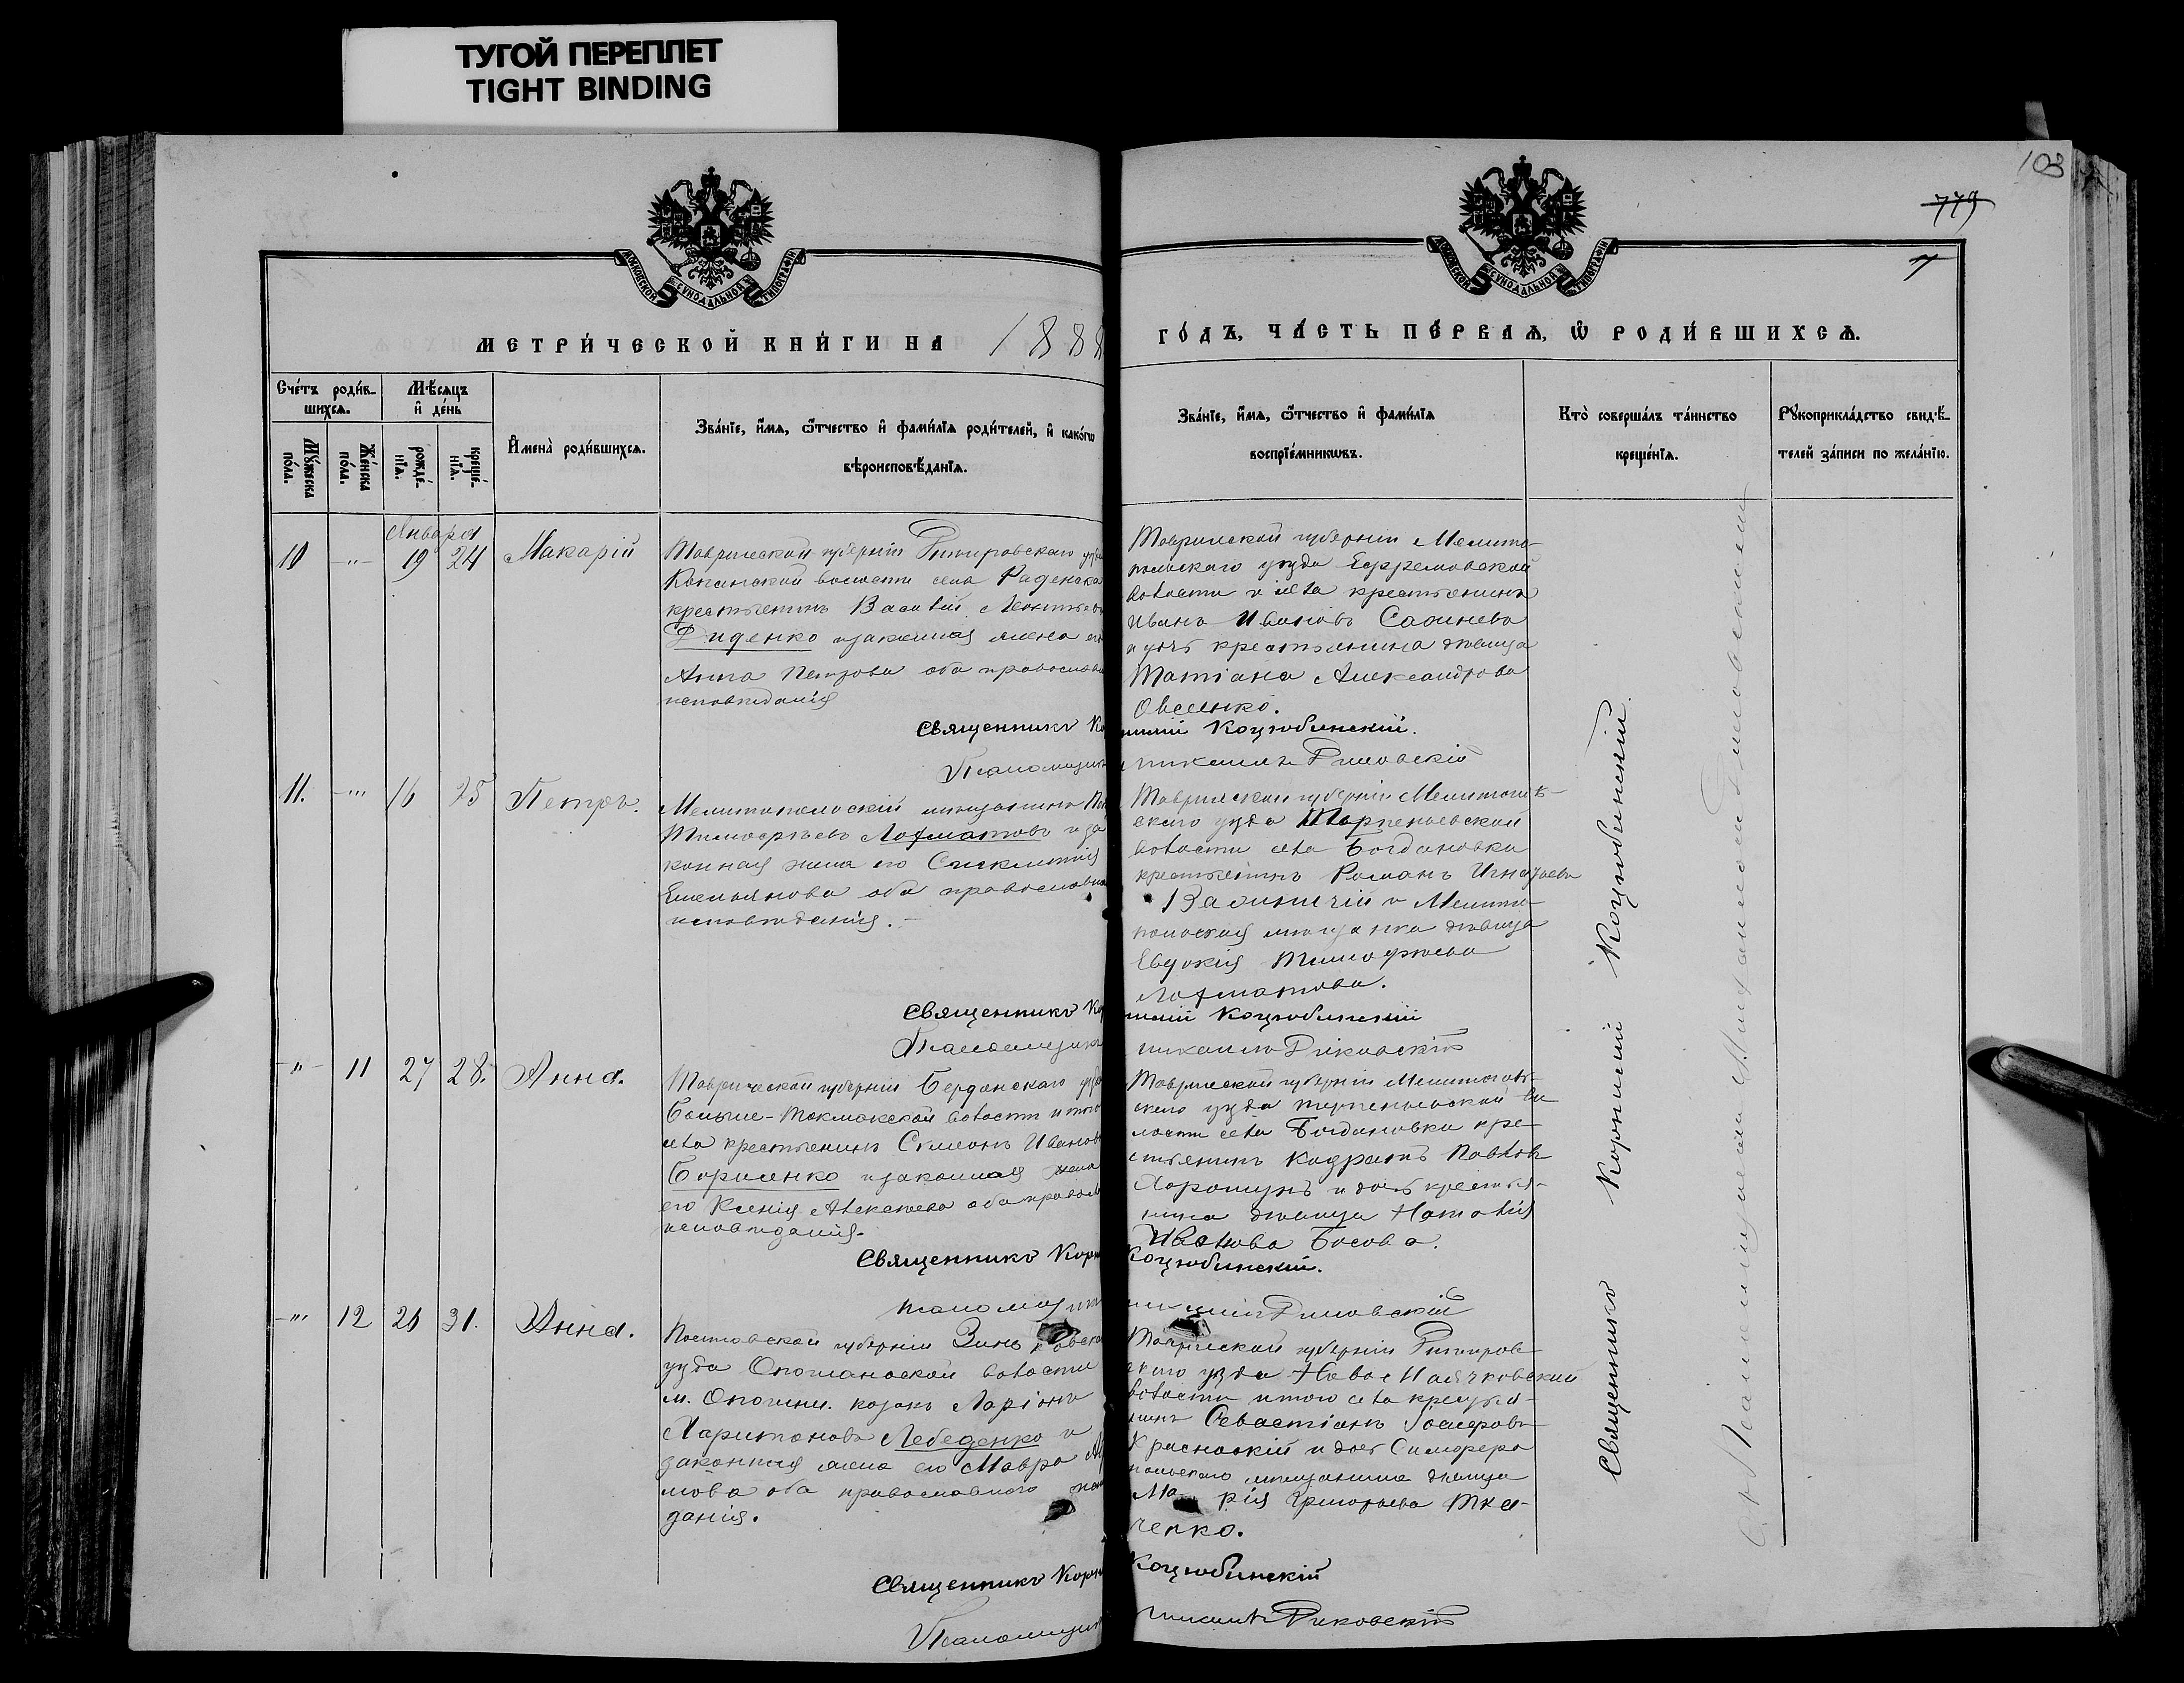 ТУГОЙ ПЕРЕПЛЕТ
TIGHT BINDING
103
779
7
МОСКОВСКОЙ СУНОДАЛЬНОЙ ТИПОГРАФІИ
МОСКОВСКОЙ СУНОДАЛЬНОЙ ТИПОГРАФІИ
МЕТРИ́ЧЕСКОЙ КНИ́ГИ НА 188
ГО́ДЪ, ЧА́СТЬ ПЕ́РВАѦ, Ѡ҆ РОДИ́ВШИХСѦ.
Сче́тъ роди́в-
шихсѧ.
Мꙋ́жеска по́ла.
Же́нска по́ла.
Мѣ́сѧцъ
и҆ де́нь
рожде́-
нїѧ.
креще́-
нїѧ.
И҆мена̀ роди́вшихсѧ.
Зва́нїе, и҆́мѧ, ѻ҆́тчество и҆ фами́лїѧ роди́телей, и҆ како́гѡ
вѣроисповѣ́данїѧ.
Зва́нїе, и҆́мѧ, ѻ҆́тчество и҆ фами́лїѧ
воспрїе́мникѡвъ.
Кто̀ соверша́лъ та́инство
креще́нїѧ.
Рꙋкоприкла́дство свидѣ́-
телей за́писи по жела́нїю.
Января
10 -"- 19 24 Макарій
Таврической губерніи
волости села Раденска
крестьянинъ Василій Леонтьевъ
Диденко и законная жена его
Анна Петрова оба православн
исповѣданія
Таврической губерніи Мелито-
польскаго уѣзда Ефремовской
волости и села крестьянинъ
Иванъ Ивановъ
и дочь крестьянина дѣвица
Татіана Александрова
Овсенко.
Священникъ Ко нилій Коцюбинскій.
Псаломщикъ
11. -"- 16 25 Петръ.
Мелитопольскій мѣщанинъ
Тимофѣевъ Лохматовъ и за
конная жена его Синклитія
Емельянова оба православна
исповѣданія.-
Таврической губерніи Мелитополь-
скаго уѣзда Терпеньевской
волости села Богдановки
крестьянинъ Романъ Игнатьевъ
и Мелито-
польская мѣщанка дѣвица
Евдокія Тимофѣева
Лохматова.
Священникъ Кор нилій Коцюбинскій
Псаломщикъ
-"- 11 27 28. Анна.
Таврической губерніи Бердянскаго уѣзд
Больше-Токмакской волости и того
села крестьянинъ Симеонъ Ивановъ
Борисенко и законная жена
его Ксенія Алексѣева оба правосл
исповѣданія.
Таврической губерніи Мелитополь-
скаго уѣзда терпеньевской во
лости села Богдановки кре-
стьянинъ Кодратъ Павловъ
Хорошунъ и дочь крестья-
нина дѣвица Наталія
Иванова Босова.
Священникъ Корн Коцюбинскій.
Псаломщик
-"- 12 28 31. Анна.
Полтавской губерніи Зиньковска
уѣзда Опошнянской волости
м. Опошни. козакъ Ларіонъ
Харитоновъ Лебеденко и
законная жена его Мавра
мова оба православного
данія.
Таврической губерніи
скаго уѣзда Ново
волости и того села крестья-
нинъ Севастіанъ
Красноскій и дочь Симферо
польскаго мѣщанина дѣвица
Марія Григорьева Тка-
ченко.
Священникъ Корни Коцюбинскій
Псаломщик
Священникъ Корнилій Коцюбинскій.